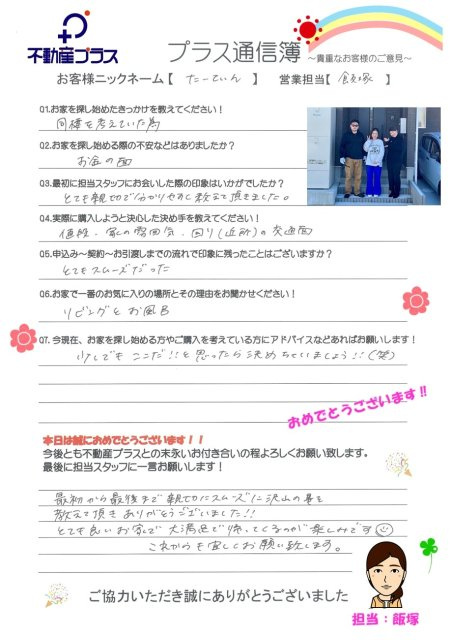 不動産プラス
プラス通信簿 ～貴重なお客様のご意見～
お客様ニックネーム【 たーてぃん 】 営業担当【 飯塚 】
Q1.お家を探し始めたきっかけを教えてください！
同棲を考えていた為
Q2.お家を探し始める際の不安などはありましたか？
お金の面
Q3.最初に担当スタッフにお会いした際の印象はいかがでしたか？
とても親切で分かりやすく教えて頂きました。
Q4.実際に購入しようと決心した決め手を教えてください！
値段・家の雰囲気・回り(近所)の交通面
Q5.申込み～契約～お引渡しまでの流れで印象に残ったことはございますか？
とてもスムーズだった
Q6.お家で一番のお気に入りの場所とその理由をお聞かせください！
リビングとお風呂
Q7.今現在、お家を探し始める方やご購入を考えている方にアドバイスなどあればお願いします！
少しでもここだ!!と思ったら決めちゃいましょう!!(笑)
おめでとうございます!!
本日は誠におめでとうございます！！
今後とも不動産プラスとの末永いお付き合いの程よろしくお願い致します。
最後に担当スタッフに一言お願いします！
最初から最後まで親切にスムーズに沢山の事を
教えて頂きありがとうございました!!
とても良いお家で大満足で帰ってくるのが楽しみです
これからも宜しくお願い致します。
ご協力いただき誠にありがとうございました
担当：飯塚